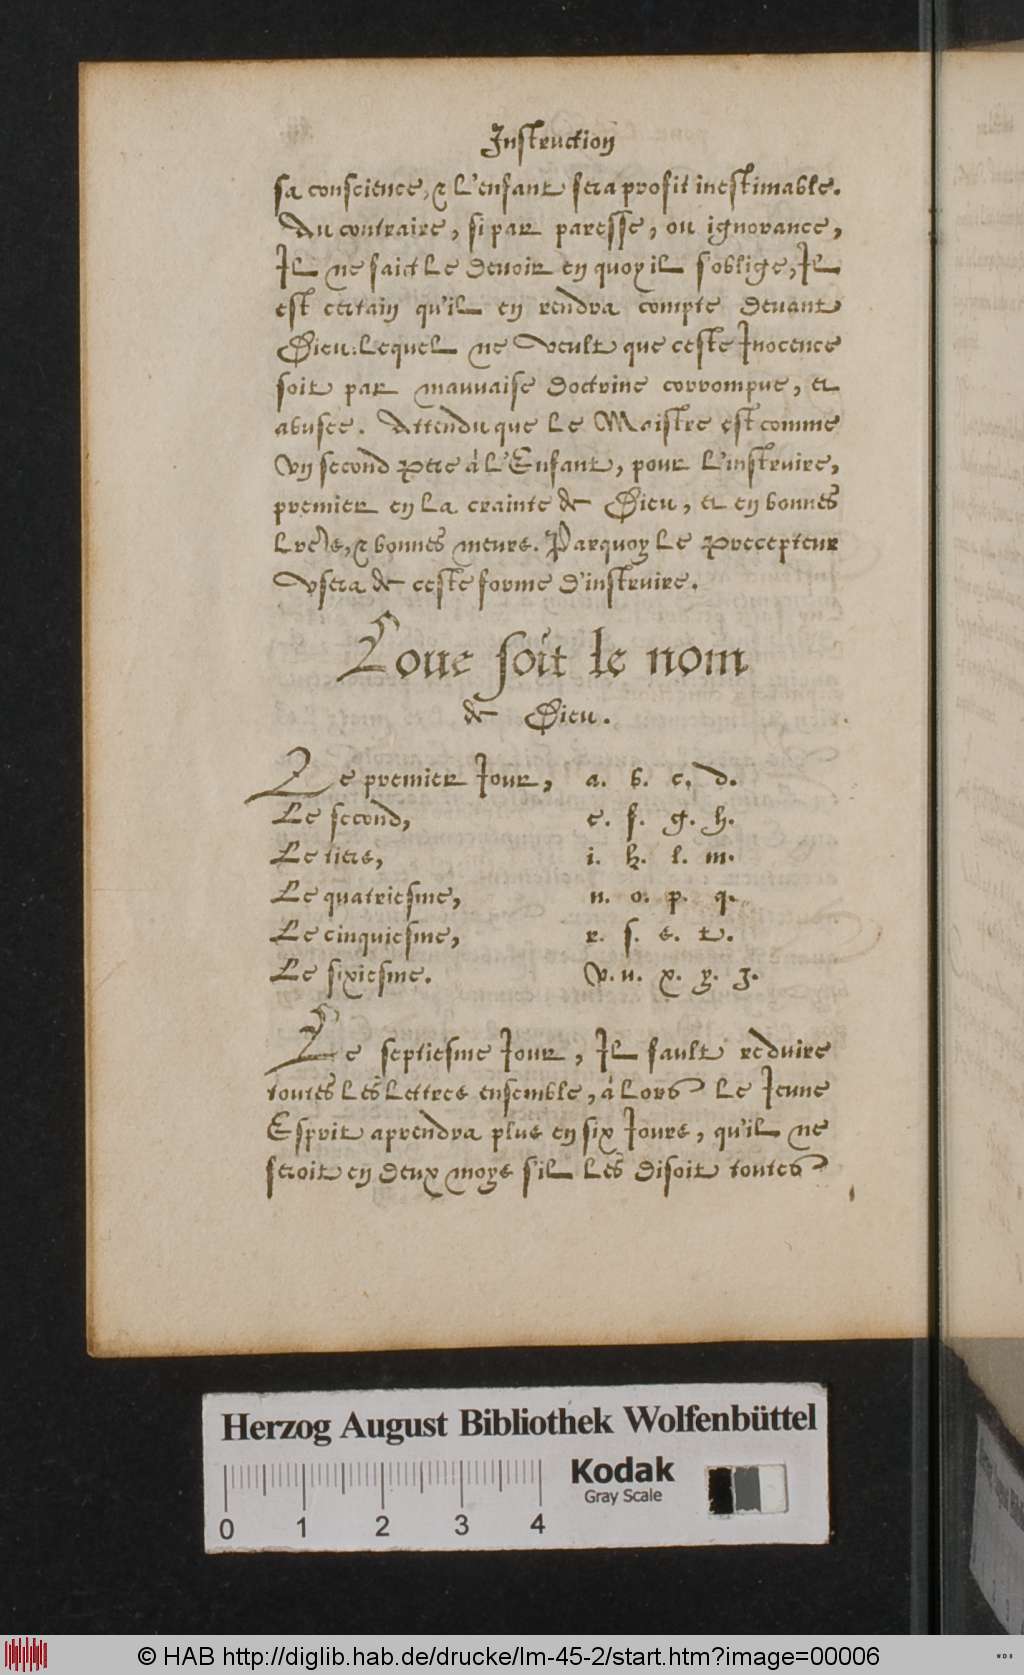 Instruction
sa conscience, & l'enfant fera profit inestimable.
Au contraire, si par paresse, ou ignorance,
Il ne faict le devoir en quoy il s'oblige, Il
est certain qu'il en rendra compte devant
Dieu: lequel ne veult que ceste Inocence
soit par mauvaise doctrine corrompue, et
abusee. Attendu que le Maistre est comme
vn second Pere à l'Enfant, pour l'instruire,
premier en la crainte de Dieu, et en bonnes
lres, & bonnes meurs. Parquoy le Precepteur
vsera de ceste forme d'instruire.
Loue soit le nom
de Dieu.
Le premier Jour, a. b. c. d.
Le second, e. f. g. h.
Le tiers, i. k. l. m.
Le quatriesme, n. o. p. q.
Le cinquiesme, r. s. s. t.
Le sixiesme. v. u. x. y. z.
Le septiesme Jour, Il fault reduire
toutes les lettres ensemble, à lors le Jeune
Esprit aprendra plus en six Jours, qu'il ne
feroit en deux moys s'il les disoit toutes
Herzog August Bibliothek Wolfenbüttel
Kodak
Gray Scale
0 1 2 3 4
© HAB http://diglib.hab.de/drucke/lm-45-2/start.htm?image=00006